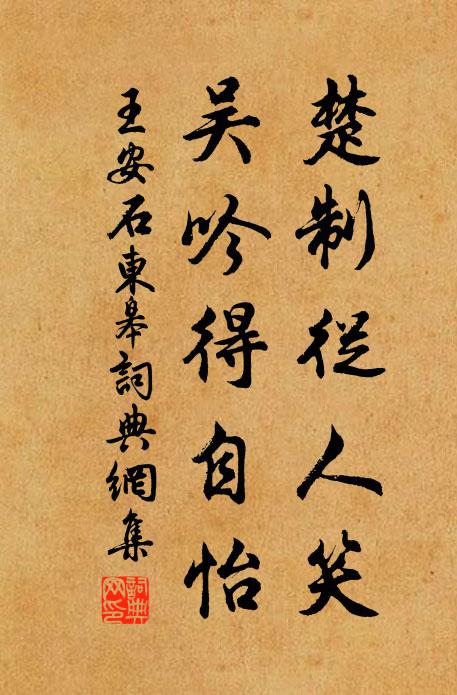 楚制從人笑
吳吟得自怡
王安石東皋詞典網集
詞典網印